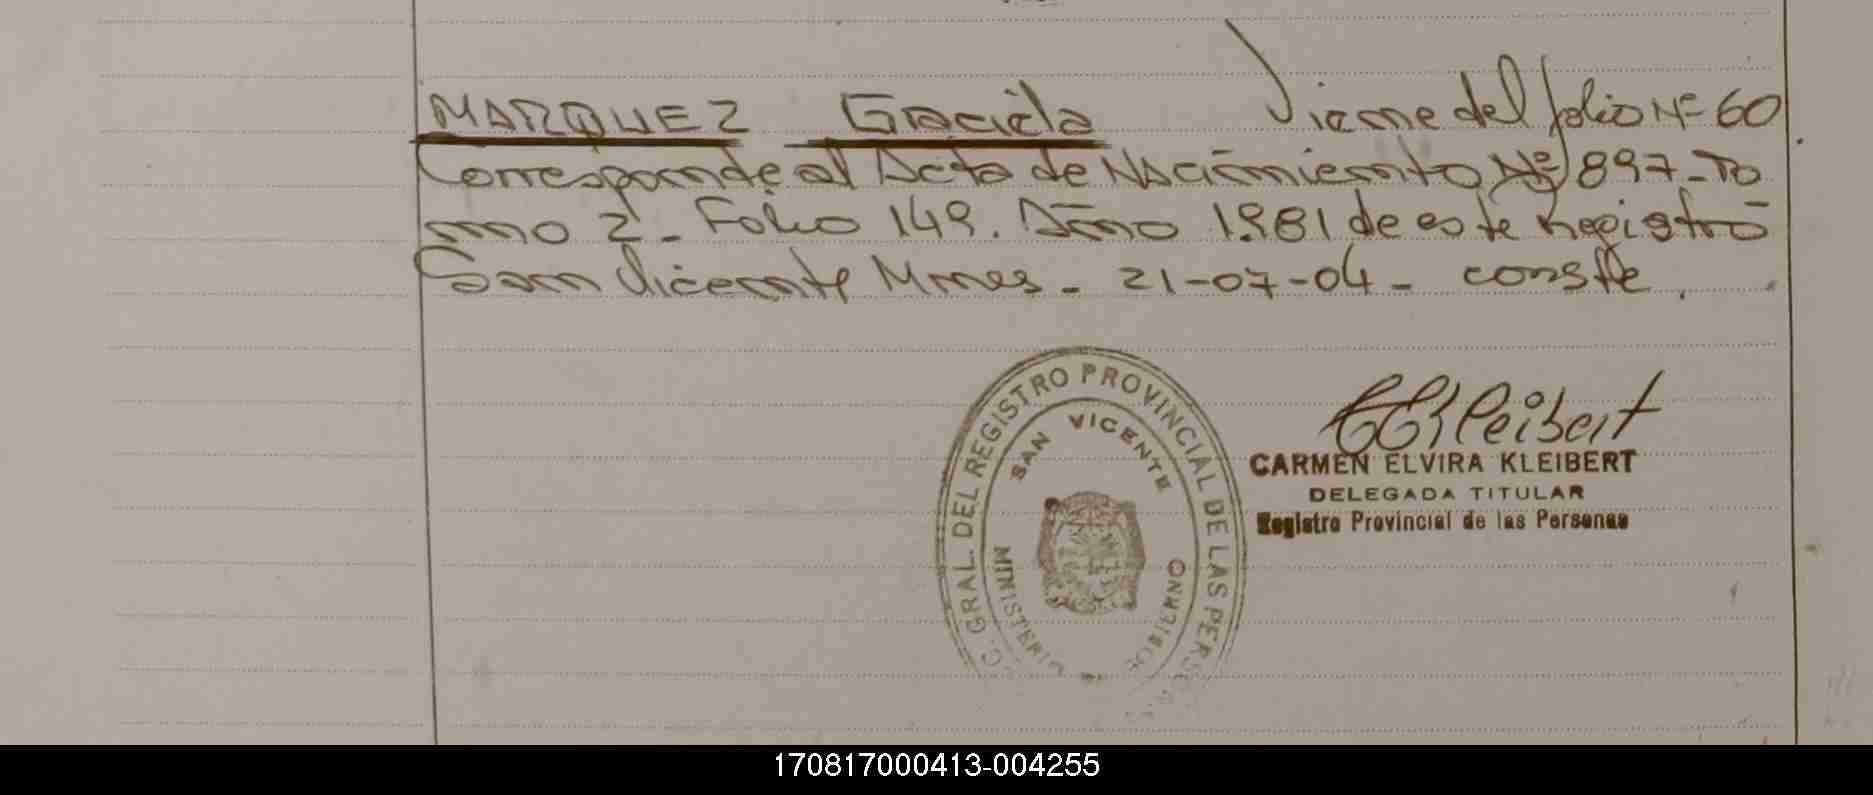 MARQUEZ Graciela Viene del folio Nº 60
Corresponde al Acta de Nacimiento Nº 897 - To
mo 2 - Folio 149. Año 1981 de este Registro
San Vicente Mnes - 21-07-04 - conste.
C. GRAL. DEL REGISTRO PROVINCIAL DE LAS PERSONAS
SAN VICENTE
MINISTERIO DE GOBIERNO
CEKleibert
CARMEN ELVIRA KLEIBERT
DELEGADA TITULAR
Registro Provincial de las Personas
170817000413-004255